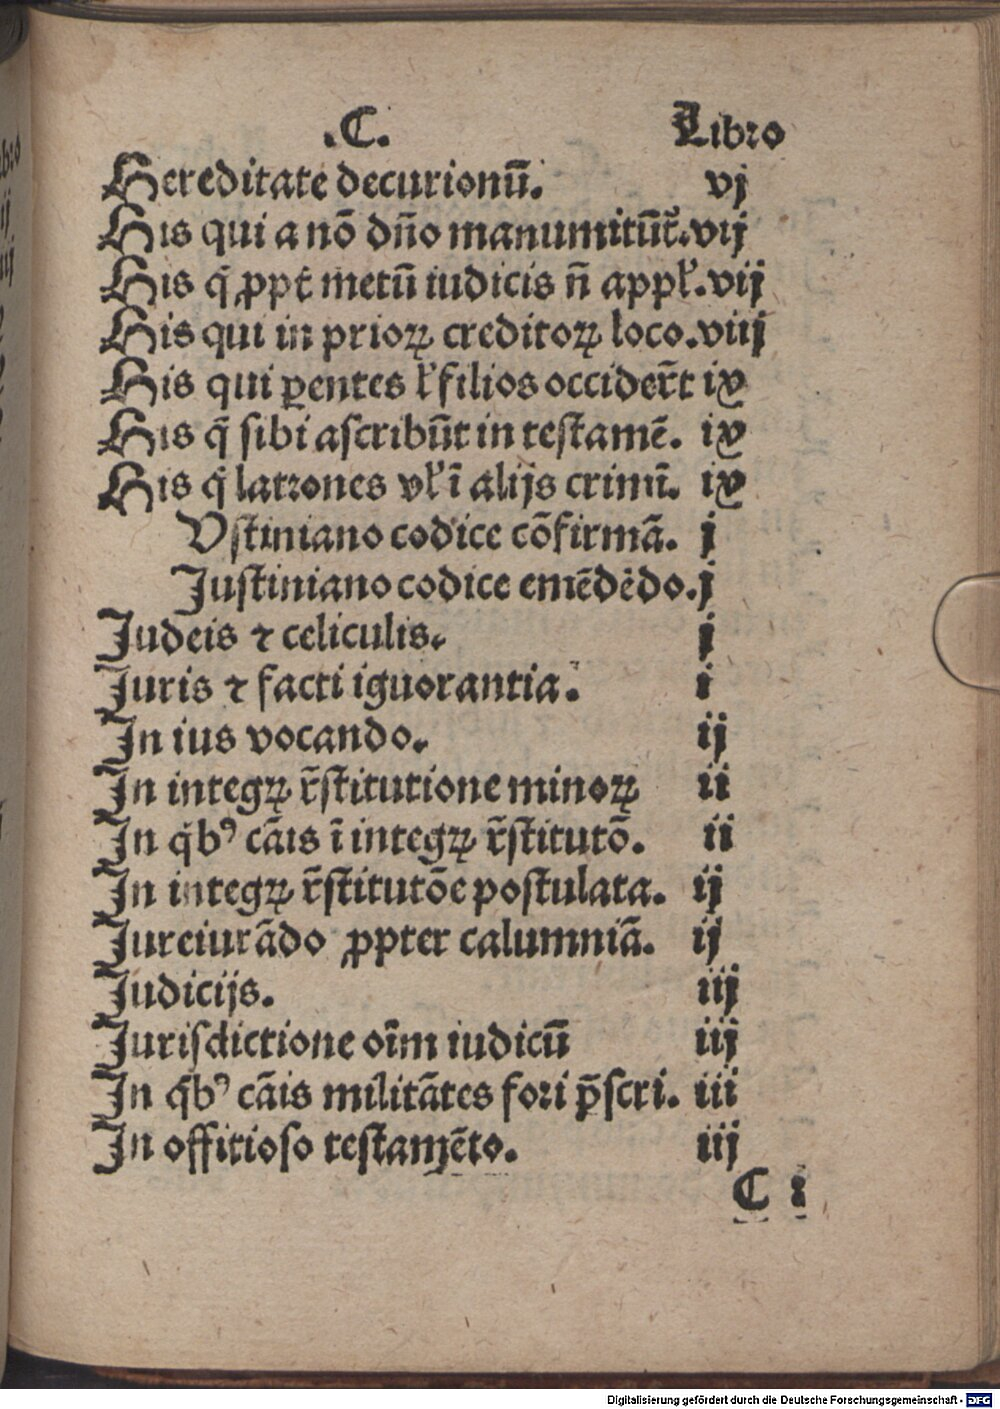 .C. Libro
Hereditate decurionū. vj
His qui a nō dn̄o manumitūt᷑. vij
His q̇ ꝓpt̄ metū iudicis n̄ appł. vij
His qui in prioꝝ creditoꝝ loco. viij
His qui ꝑentes ł filios occider̄t ix
His q̄ sibi ascribūt in testamē. ix
His q̇ latrones vł ī alijs crimī. ix
Vstiniano codice cōfirmā. j
Justiniano codice emēdēdo. j
Judeis ⁊ celiculis. j
Juris ⁊ facti iguorantia. i
In ius vocando. ij
In integꝝ r̄stitutione minoꝝ ii
In q̇bꝰ cāis ī integꝝ r̄stitutō. ii
In integꝝ r̄stitutōe postulata. ij
Jureiurādo ꝓpter calumniā. ij
Judicijs. iij
Jurisdictione oīm iudicū iij
In q̇bꝰ cāis militātes fori p̄scri. iii
In offitioso testamēto. iij
C i
Digitalisierung gefördert durch die Deutsche Forschungsgemeinschaft - DFG